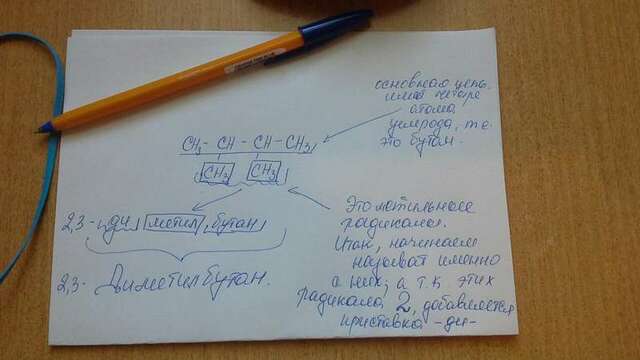 основная цепь.
имеет четыре
атома
углерода, т.е.
это бутан.
CH3 - CH - CH - CH3
CH3 CH3
2,3- ди метил бутан
2,3- Диметилбутан.
Это метильные
радикалы.
Итак, начинаем
называт именно
с них, а т.к. этих
радикала 2, добавляется
приставка -ди-